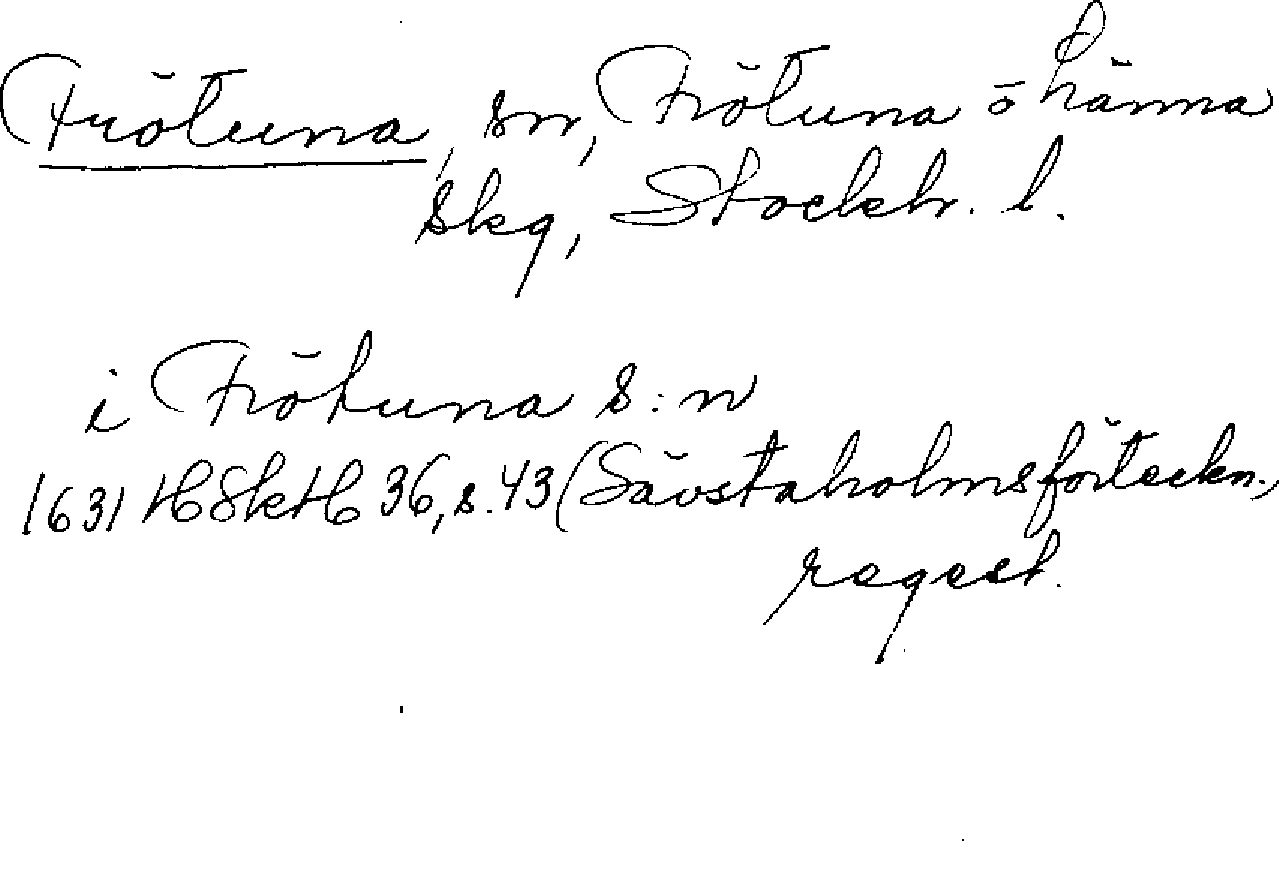 Frötuna, sn, Frötuna o Länna
skg, Stockh. l.
i Frötuna s:n
1631 HSkH 36, s. 43 (Sävstaholmsförteckn.,
regest.